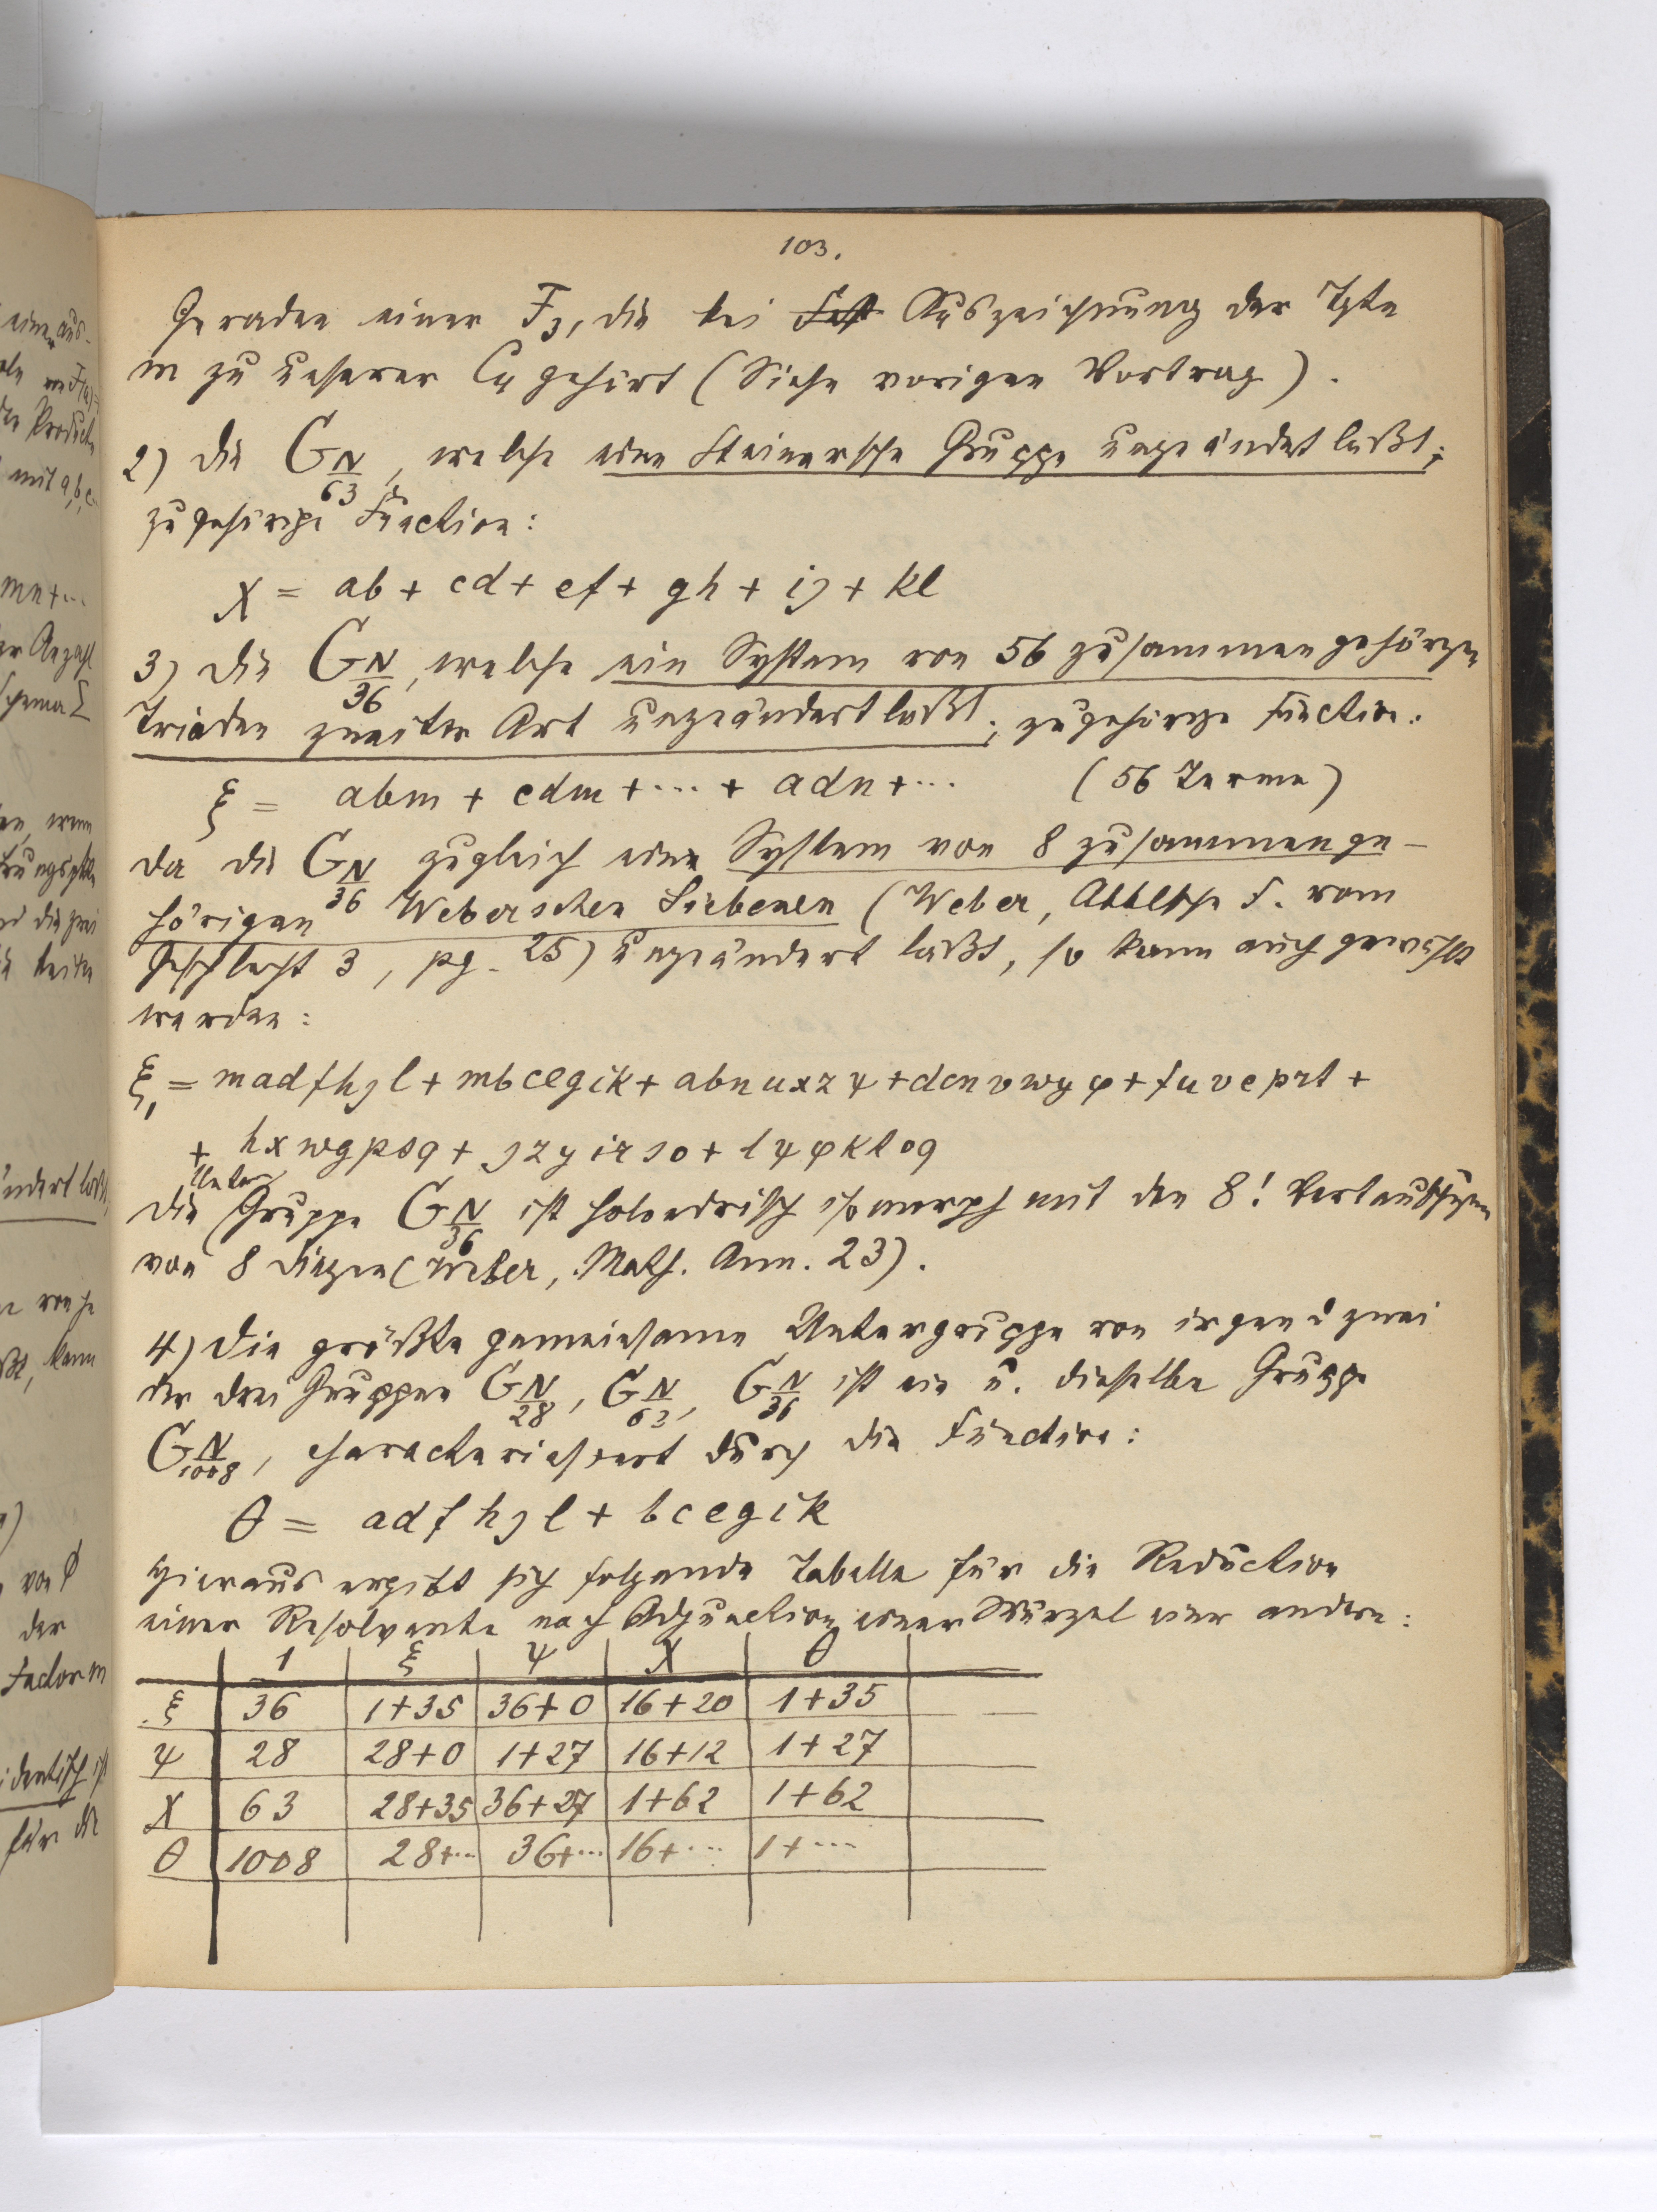 103.
Geraden einer F3, die bei Fest Auszeichnung der Tgte
m zu unserer C4 gehört (Siehe vorigen Vortrag).
2) Die G N/63, welche eine Steinersche Gruppe ungeändert läßt;
zugehörige Function:
χ = ab + cd + ef + gh + ij + kl
3) Die G N/36, welche ein System von 56 zusammengehörgen
Triaden zweiter Art ungeändert läßt; zugehörge Function:
ξ = abm + cdm + ... + adn + ... (56 Terme)
Da die G N/36 zugleich eine System von 8 zusammenge-
hörigen Weberschen Siebenen (Weber, Abelsche F. vom
Geschlecht 3, pg. 25) ungeändert läßt, so kann auch gewählt
werden:
ξ1 = madfhjl + mbcegik + abnuxzψ + dcnvwyφ + fuveprt +
+ hxwgpsq + jzyirso + lψφktoq
Die Unter Gruppe G N/36 ist holoedrisch isomorph mit den 8! Vertauschgen
von 8 Dingen (Weber, Math. Ann. 23).
4) Die größte gemeinsame Untergruppe von irgend zwei
der drei Gruppen G N/28, G N/63, G N/36 ist ein u. dieselbe Gruppe
G N/1008, characterisiert durch die Function:
θ = adfhjl + bcegik
Hieraus ergibt sich folgende Tabelle für die Reduction
einer Resolvente nach Adjunction einer Wurzel einer andern:
1 ξ ψ χ θ
ξ 36 1+35 36+0 16+20 1+35
ψ 28 28+0 1+27 16+12 1+27
χ 63 28+35 36+27 1+62 1+62
θ 1008 28+... 36+... 16+... 1+...